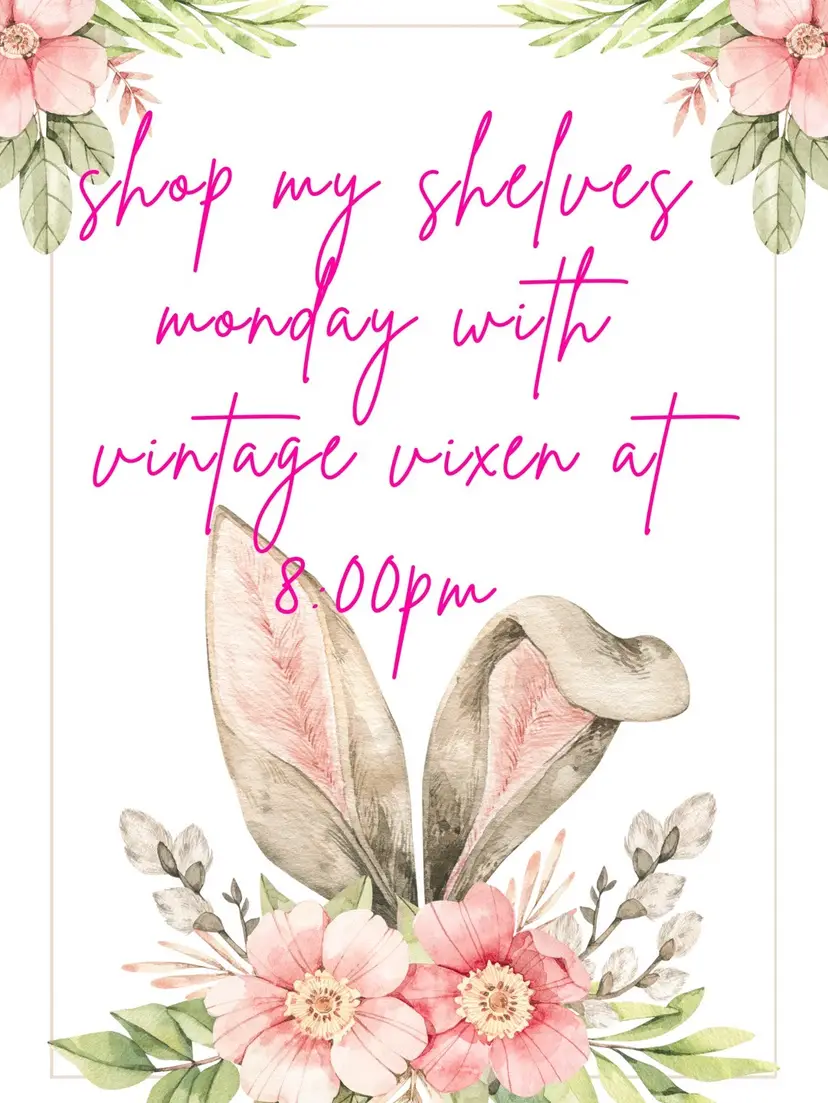 shop my shelves
monday with
vintage vixen at
8:00pm